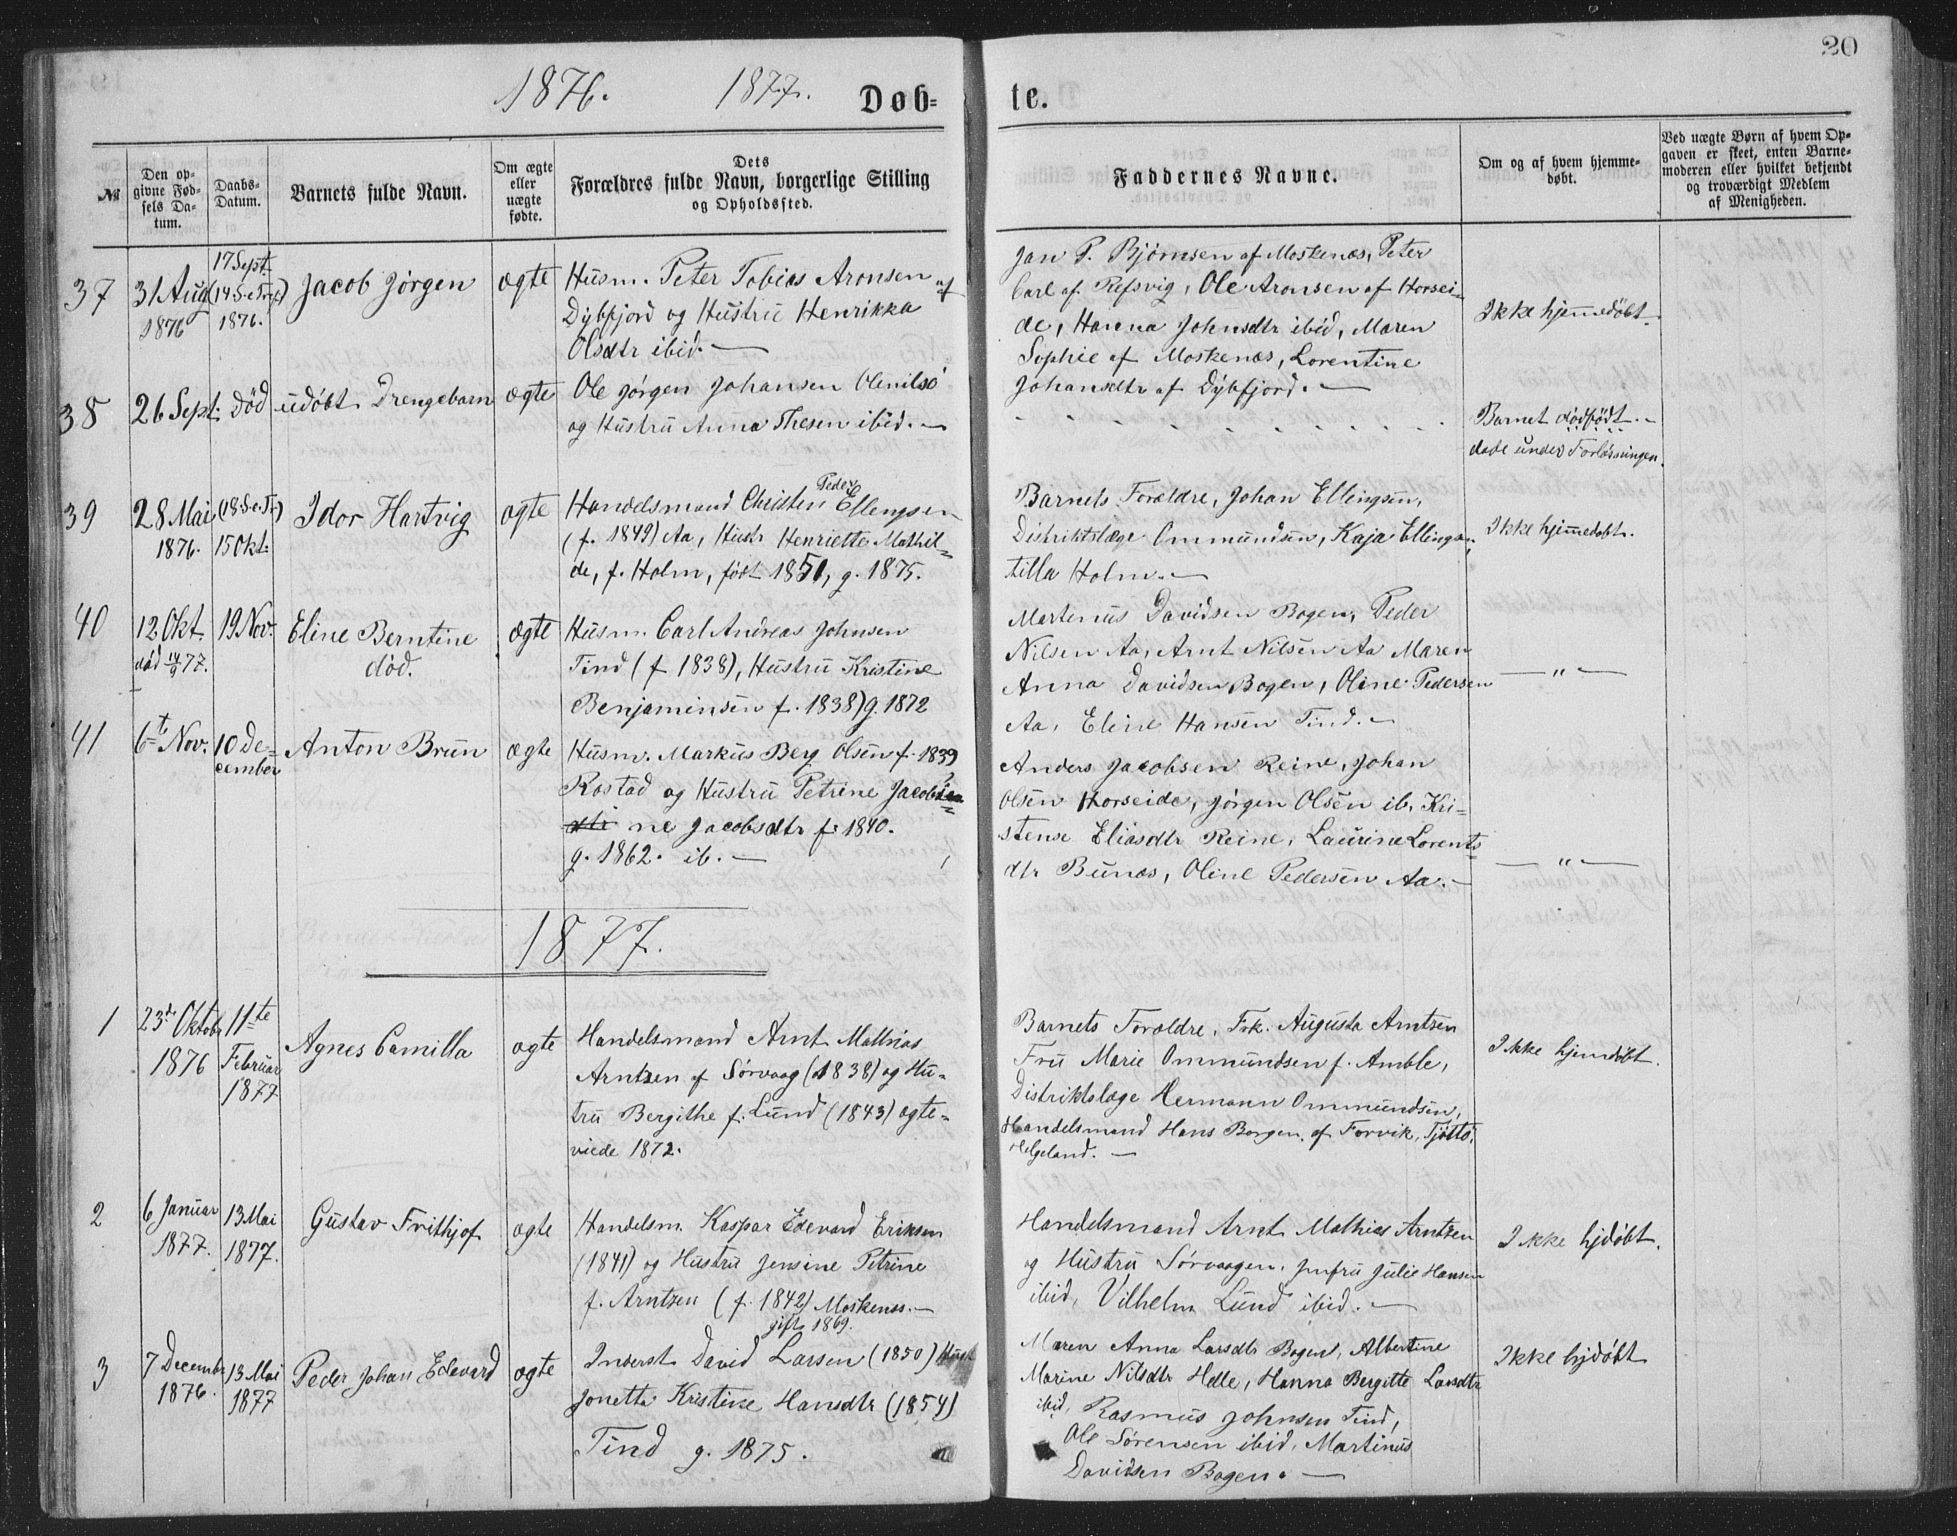 20
1876. 1877. Døb= te.
№
Den op=
givne Fød=
sels Da=
tum.
Daabs=
Datum.
Barnets fulde Navn.
Om ægte
eller
uægte
fødte.
Dets
Forældres fulde Navn, borgerlige Stilling
og Opholdssted.
Faddernes Navne.
Om og af hvem hjemme=
døbt.
Ved uægte Børn af hvem Op=
gaven er skeet, enten Barne=
moderen eller hvilket bekjendt
og troværdigt Medlem
af Menigheden.
37
31 Aug
1876
17 Sept.
(14 S. e. Tr.)
1876.
Jacob Jørgen
ægte
Husm. Peter Tobias Aronsen af
Dybfjord og Hustru Henrikka
Olsdtr ibid. —
Jan P. Bjørnsen af Moskenæs, Peter
Carl af Refsvig, Ole Aronsen af Horsei-
de, Hanna Johnsdtr ibid, Maren
Sophie af Moskenæs, Lorentine
Johansdtr af Dybfjord. —
Ikke hjemmedøbt.
38
26 Sept.
Død
udøbt Drengebarn
ægte
Ole Jørgen Johansen Olenilsö
og Hustru Anna Thesen ibid. —
Barnet dødfødt. -
døde under Forløsningen.
39
28 Mai
1876.
(18 S. e. Tr.)
15 Okt.
Idor Hartvig
ægte
Handelsmand Christen Peder Ellingsen
(f. 1849) Aa, Hustr Henriette Mathil=
de, f. Holm, født 1851, g. 1875.
Barnets Forældre, Johan Ellingsen,
Distriktslæge Ommundsen, Kaja Ellingsen,
tilla Holm. —
Ikke hjemmedøbt.
40
12 Okt.
død 14/9 77.
19 Nov.
Eline Berntine
død.
ægte
Husm. Carl Andreas Johnsen
Tind (f 1838), Hustru Kristine
Benjaminsen f. 1838) g. 1872
Martinus Davidsen Bogen, Peder
Nilsen Aa, Arnt Nilsen Aa Maren
Anna Davidsen Bogen, Oline Pedersen
Aa, Eline Hansen Tind. —
— " —
41
6te Nov.
10 De=
cember
Anton Brun
ægte
Husm. Markus Berg Olsen f. 1839
Rostad og Hustru Petrine Jacobsen
dtr ne Jacobsdtr f. 1840.
g. 1862. ib. —
Anders Jacobsen Reine, Johan
Olsen Horseide, Jørgen Olsen ib, Kri-
stense Eliasdtr Reine, Laurine Lorents=
dtr Bunæs, Oline Pedersen Aa. —
— " —
1877.
1
23de Oktobr
1876
11te
Februar
1877
Agnes Camilla
ægte
Handelsmand Arnt Mathias
Arntzen af Sørvaag (1838) og Hu-
tru Bergithe f. Lund (1843) ægte-
viede 1872.
Barnets Forældre, Frk. Augusta Arntzen
Fru Marie Ommundsen f. Amble,
Distriktslæge Hermann Ommundsen,
Handelsmand Hans Borgen af Forvik, Tjøttø,
Helgeland. —
Ikke hjemdøbt.
2
6 Januar
1877.
13 Mai
1877.
Gustav Frithjof
ægte
Handelsm. Kaspar Edevard Eriksen
(1841) og Hustru Jensine Petrine
f. Arntzen (f. 1842) Moskenæs. —
gift 1869.
Handelsmand Arnt Mathias Arntzen
og Hustru Sørvaagen, Jmfru Julie Hansen
ibid, Vilhelm Lund ibid. —
Ikke hjdøbt.
3
7 Decembr
1876.
13 Mai
1877
Peder Johan Edevard
ægte
Inderst David Larsen (1850) Hust
Jonetta Kristine Hansdtr (1854)
Tind g. 1875.
Maren Anna Larsdtr Bogen, Albertine
Marine Nilsdtr Helle, Hanna Bergitte Larsdtr
ibid, Rasmus Johnsen Tind,
Ole Sørensen ibid, Martinus
Davidsen Bogen. —
Ikke hjdøbt